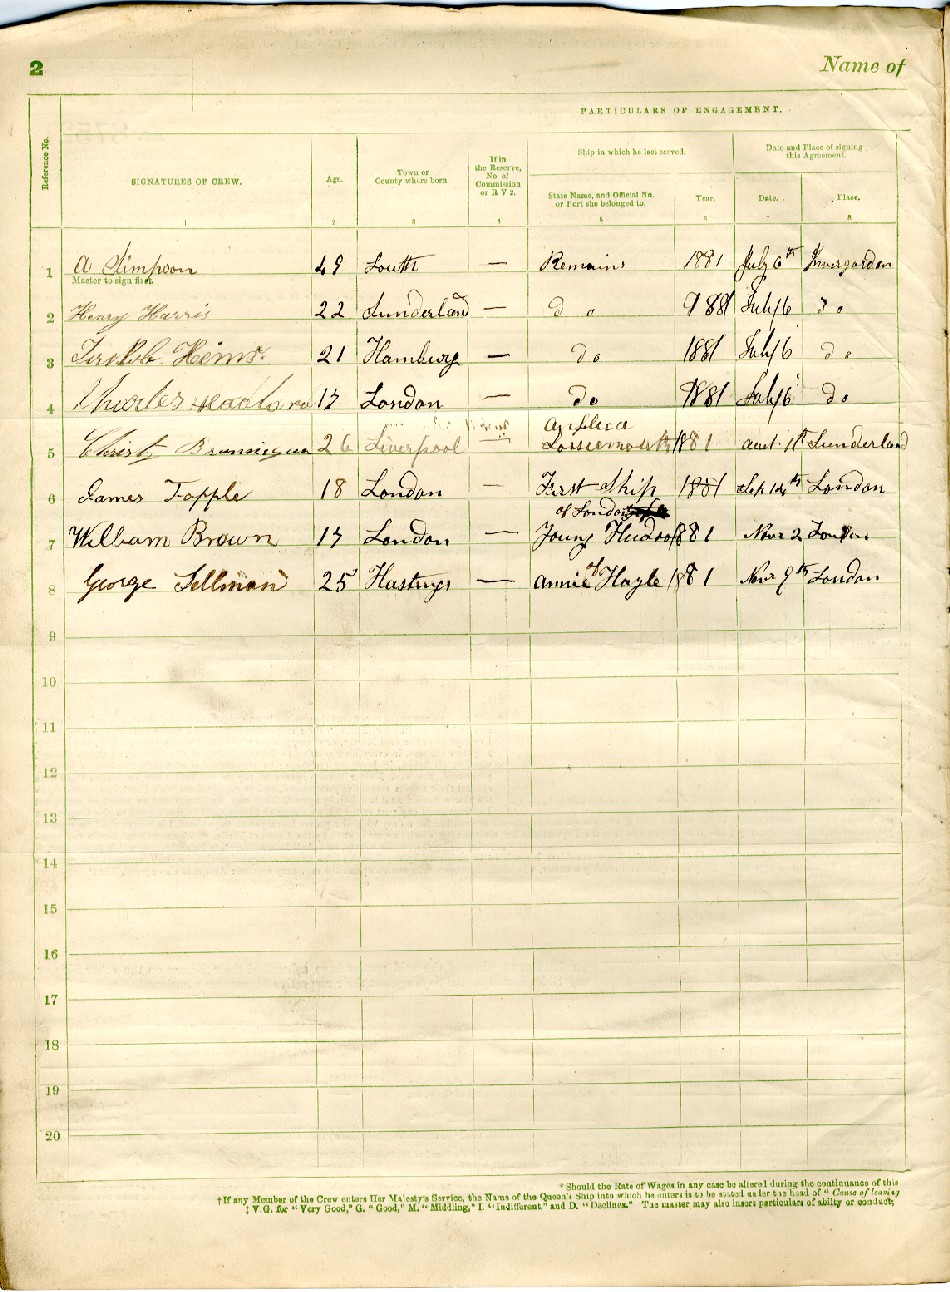 2
Name of
PARTICULARS OF ENGAGEMENT.
Reference No.
SIGNATURES OF CREW.
Age.
Town or
County where born
If in
the Reserve,
No. of
Commission
or R V 2.
Ship in which he last served.
State Name, and Official No.
or Port she belonged to.
Year.
Date and Place of signing
this Agreement.
Date.
Place.
1 2 3 4 5 6 7 8
1 A Simpson 49 South — Remains 1881 July 6th Invergordon
Master to sign first.
2 Henry Harris 22 Sunderland — do 1881 July 6 do
3 Heins 21 Hamburg — do 1881 July 6 do
4 Charles 17 London — do 1881 July 6 do
5 Christ Brannigan 26 Liverpool — Lossiemouth 1881 11th Sunderland
6 James Topple 18 London — First Ship 1881 Sep 14th London
of London
7 William Brown 17 London — Young Hudson 1881 Nov 2 London
8 George Tellman 25 Hastings — Annie of Hayle 1881 Nov 9th London
9
10
11
12
13
14
15
16
17
18
19
20
*Should the Rate of Wages in any case be altered during the continuance of this
†If any Member of the Crew enters Her Majesty's Service, the Name of the Queen's Ship into which he enters is to be stated under the head of "Cause of leaving
‡ V.G. for "Very Good," G. "Good," M. "Middling," I. "Indifferent," and D. "Declines." The master may also insert particulars of ability or conduct,